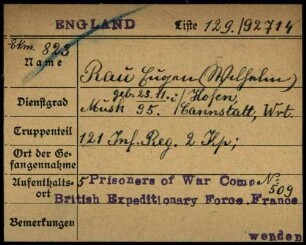 ENGLAND Liste 129./92714
Ekm. 823
Name Rau Eugen (Wilhelm)
geb. 23.11. i/Hofen,
Dienstgrad Musk 95. /Cannstatt, Wrt.
Truppenteil 121 Inf. Reg. 2 Kp;
Ort der Ge-
fangennahme
Aufenthalts-
ort 5 Prisoners of War Comp. No: 509
British Expeditionary Force, France
Bemerkungen
wenden